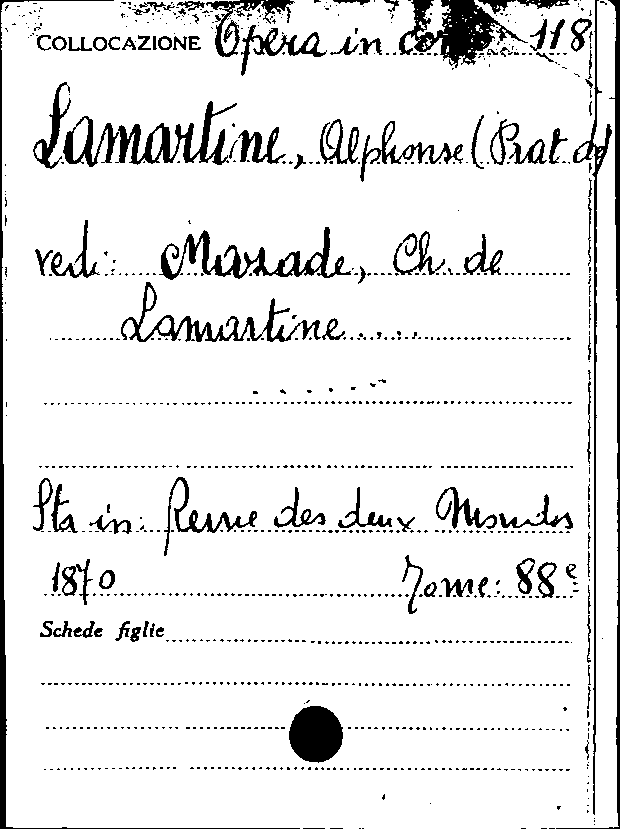 COLLOCAZIONE Opera in 118
Lamartine, Alphonse (Prat de)
vedi: Mazade, Ch. de
Lamartine ....
......
Sta in: Revue des deux Mondes
1870 Tome: 88e
Schede figlie